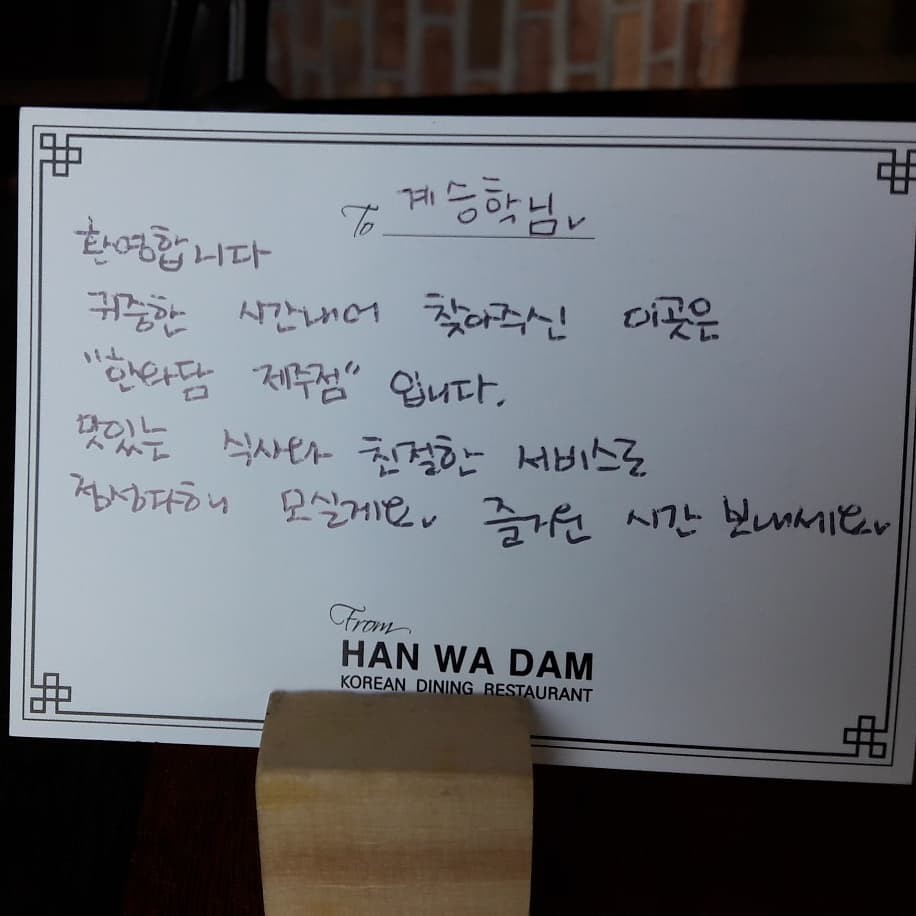 To 계승학님
환영합니다
귀중한 시간내어 찾아주신 이곳은
"한와담 제주점" 입니다.
맛있는 식사와 친절한 서비스로
정성다해 모실게요 즐거운 시간 보내세요
From
HAN WA DAM
KOREAN DINING RESTAURANT